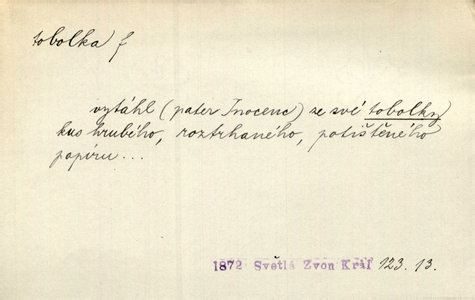 tobolka f
vytáhl (pater Inocenc) ze své tobolky
kus hrubého, roztrhaného, potištěného
papíru...
1872 Světlá Zvon Král 123.13.